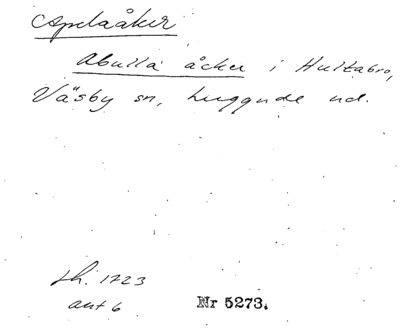 Apelaåker
Abulla åcker i Hultabro,
Väsby sn, Luggude hd.
Lh. 1723
ant 6
Nr 5273.